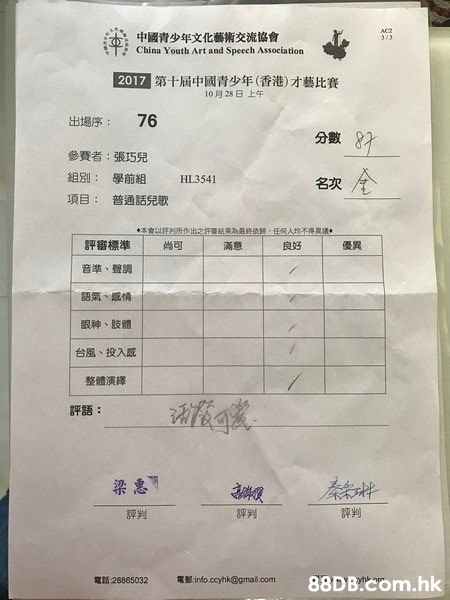 中國青少年文化藝術交流協會
China Youth Art and Speech Association
AC2
3 / 3
2017 第十屆中國青少年(香港)才藝比賽
10月28日 上午
出場序： 76
分數 87
參賽者：張巧兒
組別： 學前組 HL3541
名次 金
項目： 普通話兒歌
♦本會以評判所作出之評審結果為最終依歸，任何人均不得異議♦
評審標準 尚可 滿意 良好 優異
音準、聲調 /
語氣、感情 /
眼神、肢體 /
台風、投入感 /
整體演繹 /
評語： 活潑可愛
梁惠
評判 評判 評判
電話:28865032 電郵:info.ccyhk@gmail.com
88DB.com.hk